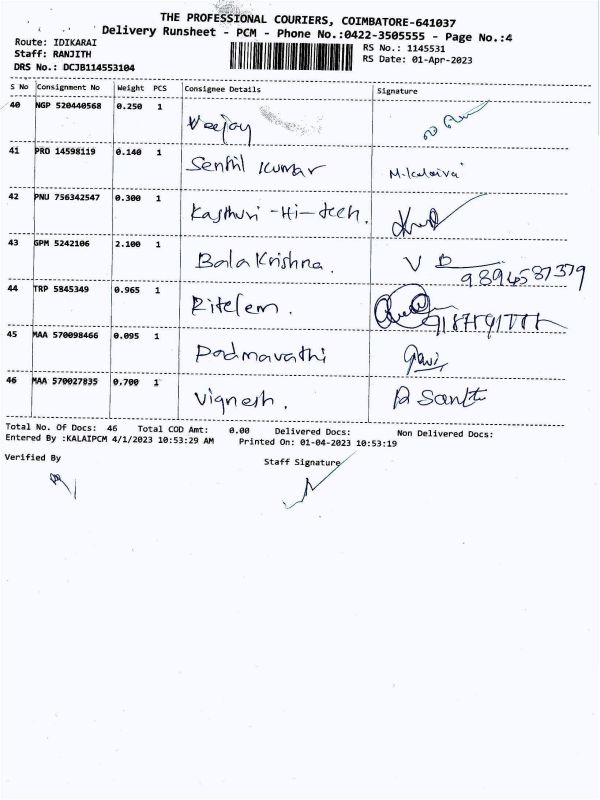 THE PROFESSIONAL COURIERS, COIMBATORE-641037
Delivery Runsheet - PCM - Phone No.:0422-3505555 - Page No.:4
Route: IDIKARAI RS No.: 1145531
Staff: RANJITH RS Date: 01-Apr-2023
DRS No.: DCJB114553104
S No Consignment No Weight PCS Consignee Details Signature
40 NGP 520440568 0.250 1 Veejay
41 PRO 14598119 0.140 1 Senthil Kumar M.Kalaivai
42 PNU 756342547 0.300 1 Kasthuri -Hi-tech.
43 GPM 5242106 2.100 1 Bala Krishna. V B 9894587379
44 TRP 5845349 0.965 1 Ritelem.
45 MAA 570098466 0.095 1 Padmavathi
46 MAA 570027835 0.700 1 Vignesh.
Total No. Of Docs: 46 Total COD Amt: 0.00 Delivered Docs: Non Delivered Docs:
Entered By :KALAIPCM 4/1/2023 10:53:29 AM Printed On: 01-04-2023 10:53:19
Verified By Staff Signature